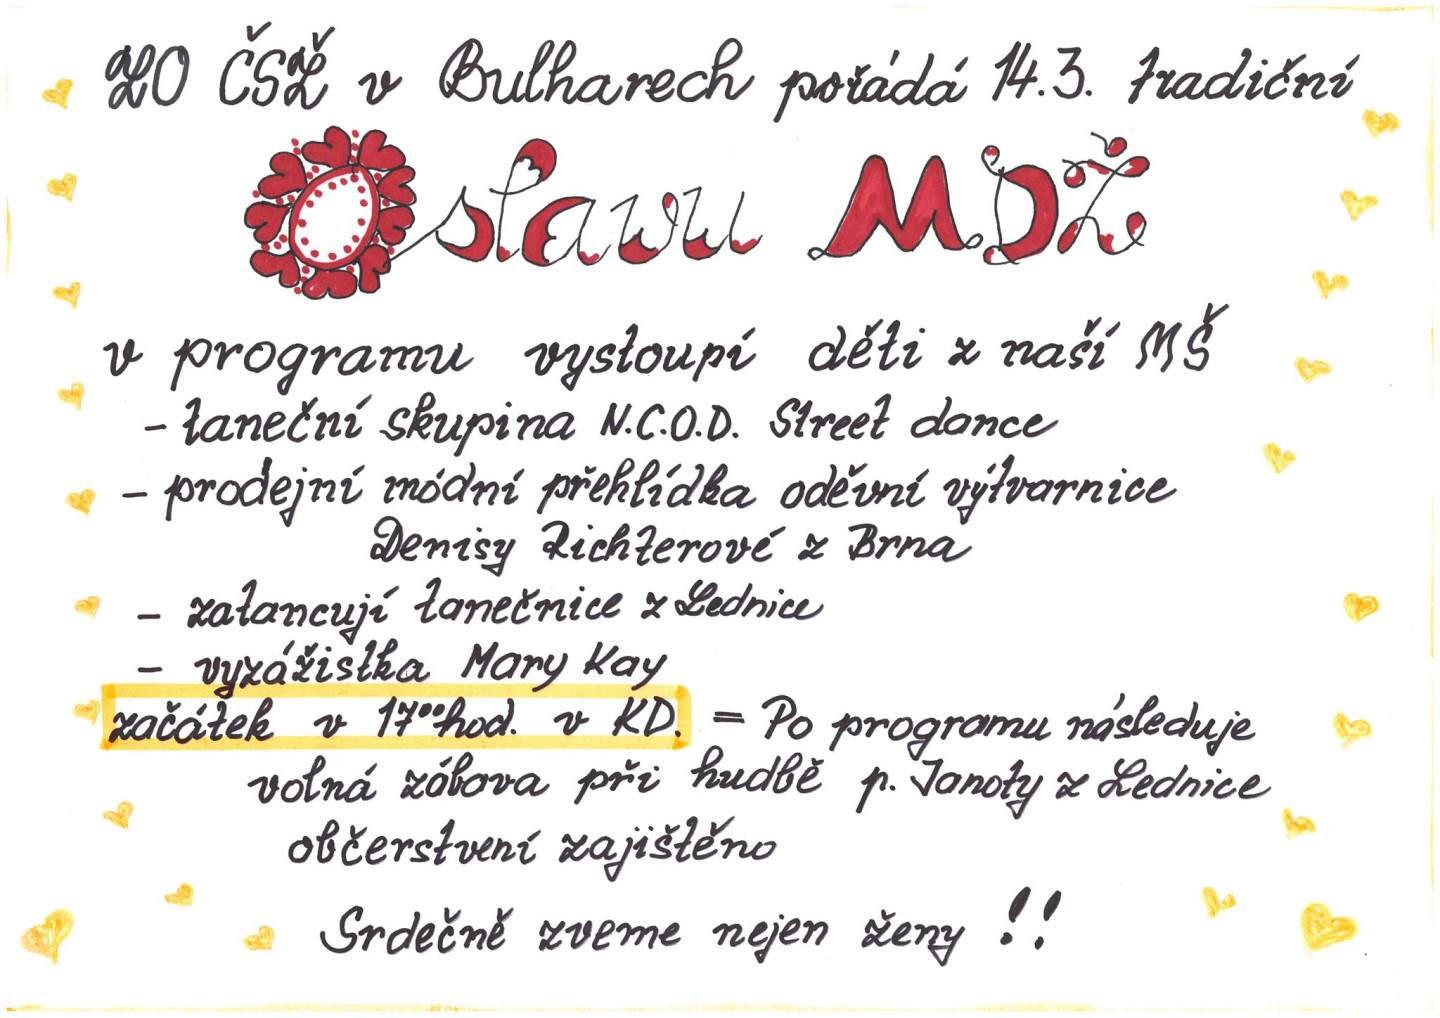 ZO ČSŽ v Bulharech pořádá 14.3. tradiční
Oslavu MDŽ
v programu vystoupí děti z naší MŠ
- taneční skupina N.C.O.D. Street dance
- prodejní módní přehlídka oděvní výtvarnice
Denisy Richterové z Brna
- zatancují tanečnice z Lednice
- vyzážistka Mary Kay
začátek v 17⁰⁰hod. v KD. = Po programu následuje
volná zábava při hudbě p. Janoty z Lednice
občerstvení zajištěno
Srdečně zveme nejen ženy !!